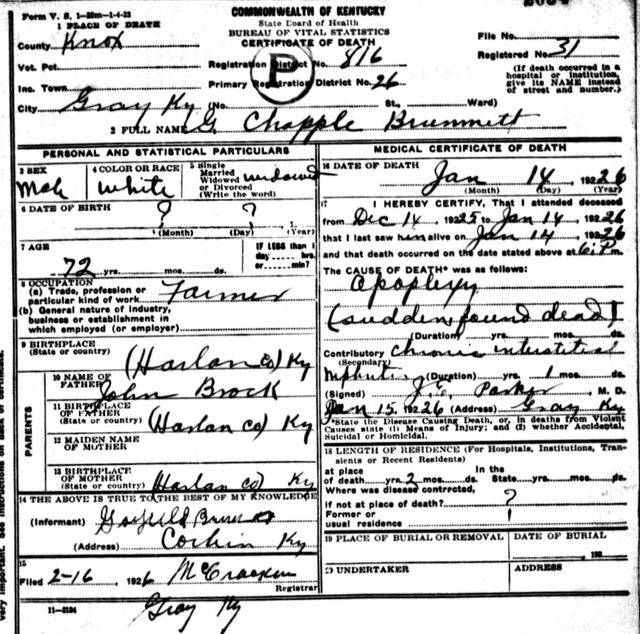 Form V. S. 1-35m-1-4-23
1 PLACE OF DEATH
County Knox
Vot. Pct.
Inc. Town
City Gray Ky (No. St., Ward)
COMMONWEALTH OF KENTUCKY
State Board of Health
BUREAU OF VITAL STATISTICS
CERTIFICATE OF DEATH
Registration District No. 816
Primary Registration District No. 26
P
File No.
Registered No. 31
(If death occurred in a
hospital or institution,
give its NAME instead
of street and number.)
2 FULL NAME G. Chapple Brummett
PERSONAL AND STATISTICAL PARTICULARS
3 SEX Male
4 COLOR OR RACE White
5 Single
Married
Widowed
or Divorced
(Write the word) widowed
6 DATE OF BIRTH ? ? 1
(Month) (Day) (Year)
7 AGE
72 yrs. mos. ds.
IF LESS than 1
day hrs.
or min.?
8 OCCUPATION
(a) Trade, profession or
particular kind of work Farmer
(b) General nature of industry,
business or establishment in
which employed (or employer)
9 BIRTHPLACE
(State or country) (Harlan co) Ky
PARENTS
10 NAME OF
FATHER John Brock
11 BIRTHPLACE
OF FATHER
(State or country) (Harlan co) Ky
12 MAIDEN NAME
OF MOTHER
13 BIRTHPLACE
OF MOTHER
(State or country) (Harlan co) Ky
14 THE ABOVE IS TRUE TO THE BEST OF MY KNOWLEDGE
(Informant)
(Address) Corbin Ky
15
Filed 2-16, 1926 McCracken
Registrar
11-3184 Gray Ky
MEDICAL CERTIFICATE OF DEATH
16 DATE OF DEATH
Jan 14, 1926
(Month) (Day) (Year)
17 I HEREBY CERTIFY, That I attended deceased
from Dec 14, 1925 to Jan 14, 1926
that I last saw him alive on Jan 14, 1926
and that death occurred on the date stated above at 6 P.m.
The CAUSE OF DEATH* was as follows:
Apoplexy
(sudden found dead)
(Duration) yrs. mos. ds.
Contributory Chronic interstitial
(Secondary)
Nephritis (Duration) yrs. 1 mos. ds.
(Signed) J.E. Parker M. D.
Jan 15, 1926 (Address) Gray Ky
*State the Disease Causing Death, or, in deaths from Violent
Causes state (1) Means of Injury; and (2) whether Accidental,
Suicidal or Homicidal.
18 LENGTH OF RESIDENCE (For Hospitals, Institutions, Tran-
sients or Recent Residents)
at place In the
of death yrs. 2 mos. ds. State yrs. mos. ds.
Where was disease contracted,
if not at place of death? ?
Former or
usual residence
19 PLACE OF BURIAL OR REMOVAL
DATE OF BURIAL
192
20 UNDERTAKER
ADDRESS